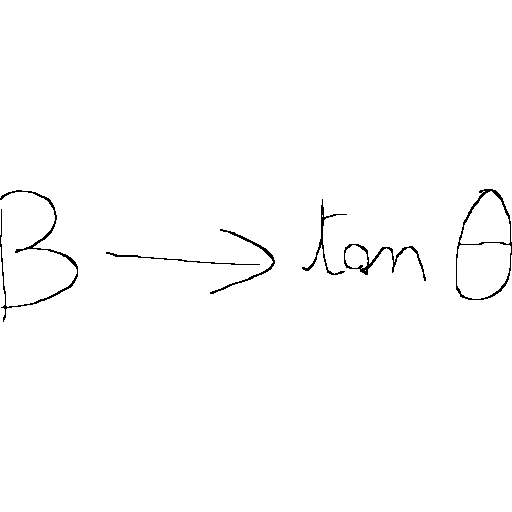 B → tan θ